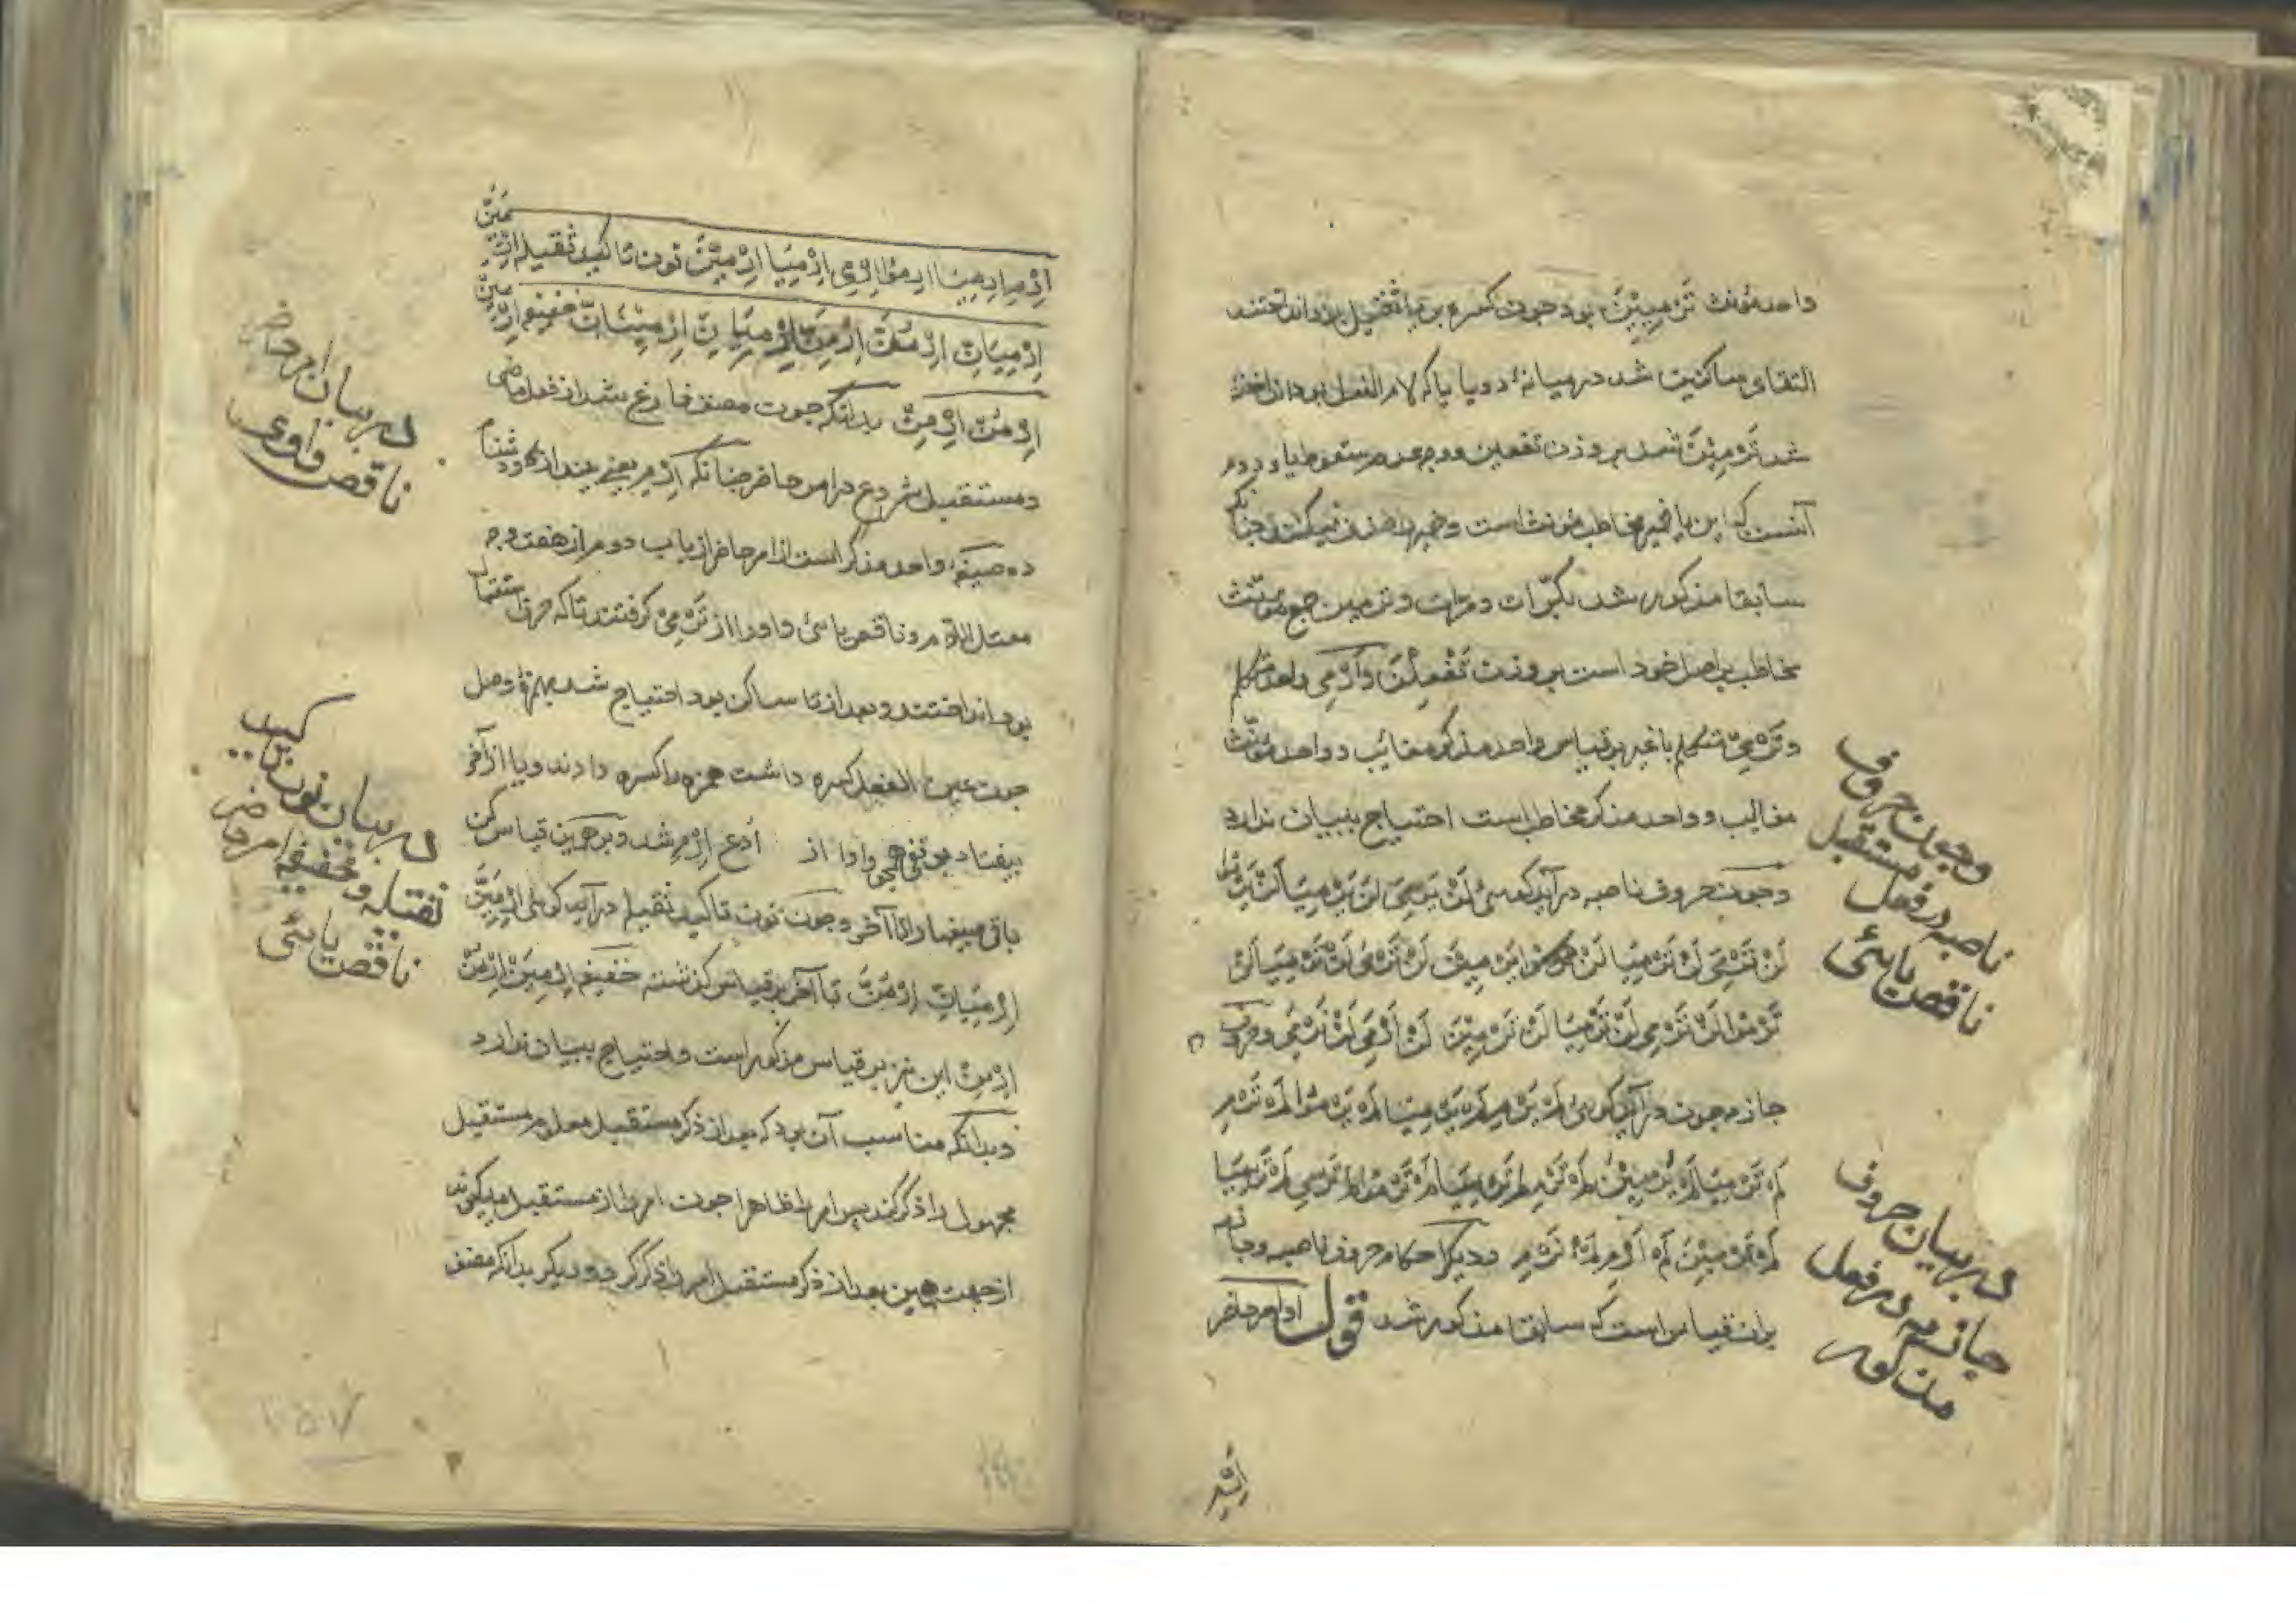 واحد مؤنث تَرْمِیِیْنَ بود چون کسره بر یا ثقیل بود انداختند
التقای ساکنین شد در میانهٔ دو یا یا که لام الفعل بود انداخته
شد تَرْمِیْنَ شد بر وزن تفعین و وجه عدم سقوط یاء دوم
آنست که این یا ضمیر مخاطب مؤنث است و ضمیر را حذف نمیکنند چنانکه
سابقا مذکور شد بکرّات و مرّات و ترمین جمع مؤنث
مخاطب بر اصل خود است بر وزن تَفْعِلْنَ وَاَرْمِی واحد متکلم
و نَرْمِی متکلم با غیر بر قیاس واحد مذکر مغائب و واحد مؤنث
مغائب و واحد مذکر مخاطب است احتیاج ببیان ندارد
و چون حروف ناصبه در آید گوئی لَنْ یَرْمِیَ لَنْ یَرْمِیَا لَنْ یَرْمُوا
لَنْ تَرْمِیَ لَنْ تَرْمِیَا لَنْ یَرْمِیْنَ لَنْ تَرْمِیَ لَنْ تَرْمِیَا لَنْ
تَرْمُوا لَنْ تَرْمِی لَنْ تَرْمِیَا لَنْ تَرْمِیْنَ لَنْ اَرْمِیَ لَنْ نَرْمِیَ و حروف
جازمه چون در آید گوئی لَمْ یَرْمِ لَمْ یَرْمِیَا لَمْ یَرْمُوا لَمْ تَرْمِ
لَمْ تَرْمِیَا لَمْ یَرْمِیْنَ لَمْ تَرْمِ لَمْ تَرْمِیَا لَمْ تَرْمُوا لَمْ تَرْمِی لَمْ تَرْمِیَا
لَمْ تَرْمِیْنَ لَمْ اَرْمِ لَمْ نَرْمِ و دیگر احکام حروف ناصبه و جازمه
بران قیاس است که سابقا مذکور شد قوله امر حاضر
و چون حروف
ناصبه در فعل مستقبل
ناقص یائی
در بیان حروف
جازمه در فعل
مذکور
اِرْمِ
اِرْمِ اِرْمِیَا اِرْمُوا اِرْمِی اِرْمِیَا اِرْمِیْنَ نون تاکید ثقیله اِرْمِیَنَّ
اِرْمِیَانِّ اِرْمُنَّ اِرْمِنَّ اِرْمِیَانِّ اِرْمِیْنَانِّ خفیفه اِرْمِیَنْ
اِرْمُنْ اِرْمِنْ بدانکه چون مصنف فارغ شد از فعل ماضی
و مستقبل شروع در امر حاضر چنانکه اِرْمِ یعنی بینداز
صیغهٔ واحد مذکر است از امر حاضر از باب دوم از هفت وجه
معتل اللام و ناقص یائی و او را از تَرْمِی گرفتند تا که حرف استقبال
بود انداختند و بعد از تا ساکن بود احتیاج شد بهمزهٔ وصل
چون عین الفعل کسره داشت همزه را کسره دادند و یا از آخر
بیفتاد اُدْعُ اِرْمِ شد و بر همین قیاس کن
باقی صیغها را تا آخر و چون نون تاکید ثقیله در آید گوئی اِرْمِیَنَّ
اِرْمِیَانِّ اِرْمُنَّ تا آخر بر قیاس گذشته خفیفه اِرْمِیَنْ اِرْمُنْ
اِرْمِنْ این نیز بر قیاس مذکور است و احتیاج ببیان ندارد
و بدانکه مناسب آن بود که بعد از ذکر مستقبل معلوم مستقبل
مجهول را ذکر کند پس امر را ظاهرا چون امر را از مستقبل میگیرند
از جهت همین بعد از ذکر مستقبل امر را ذکر کرد و دیگر بدانکه مصنف
در بیان امر حاضر
ناقص واوی
در بیان نون تاکید
ثقیله و خفیفه امر حاضر
ناقص یائی